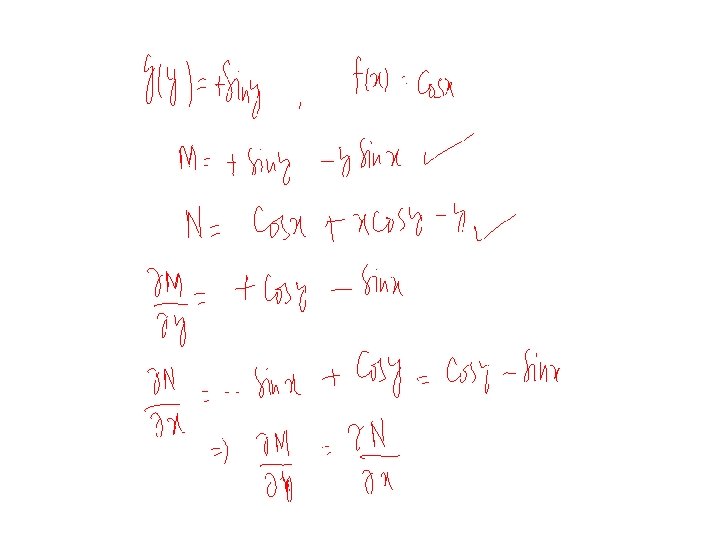 g(y) = + sin y , f(x) = cos x
M = + sin y - y sin x ✓
N = cos x + x cos y - y ✓
∂M/∂y = + cos y - sin x
∂N/∂x = - sin x + cos y = cos y - sin x
⇒ ∂M/∂y = ∂N/∂x